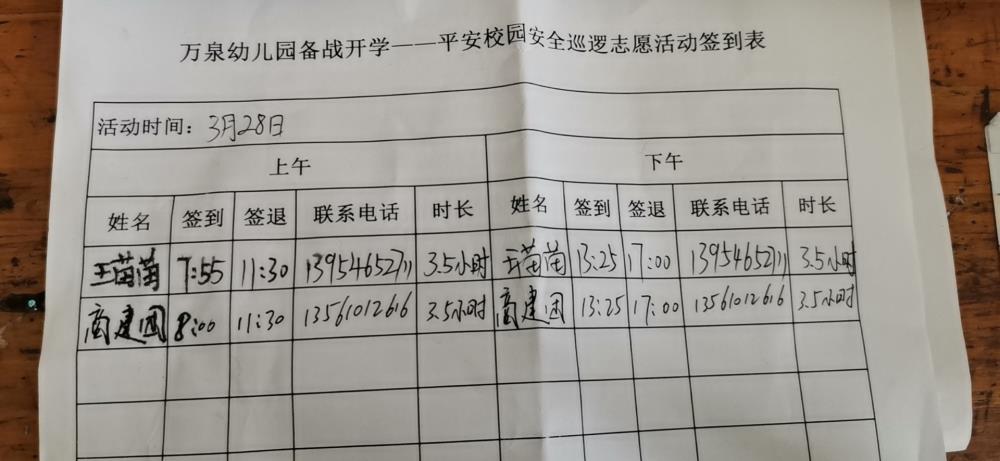 万泉幼儿园备战开学——平安校园安全巡逻志愿活动签到表
活动时间：3月28日
上午 下午
姓名 签到 签退 联系电话 时长 姓名 签到 签退 联系电话 时长
王苗苗 7:55 11:30 13954652711 3.5小时 王苗苗 13:25 17:00 13954652711 3.5小时
高建国 8:00 11:30 13561012616 3.5小时 高建国 13:25 17:00 13561012616 3.5小时